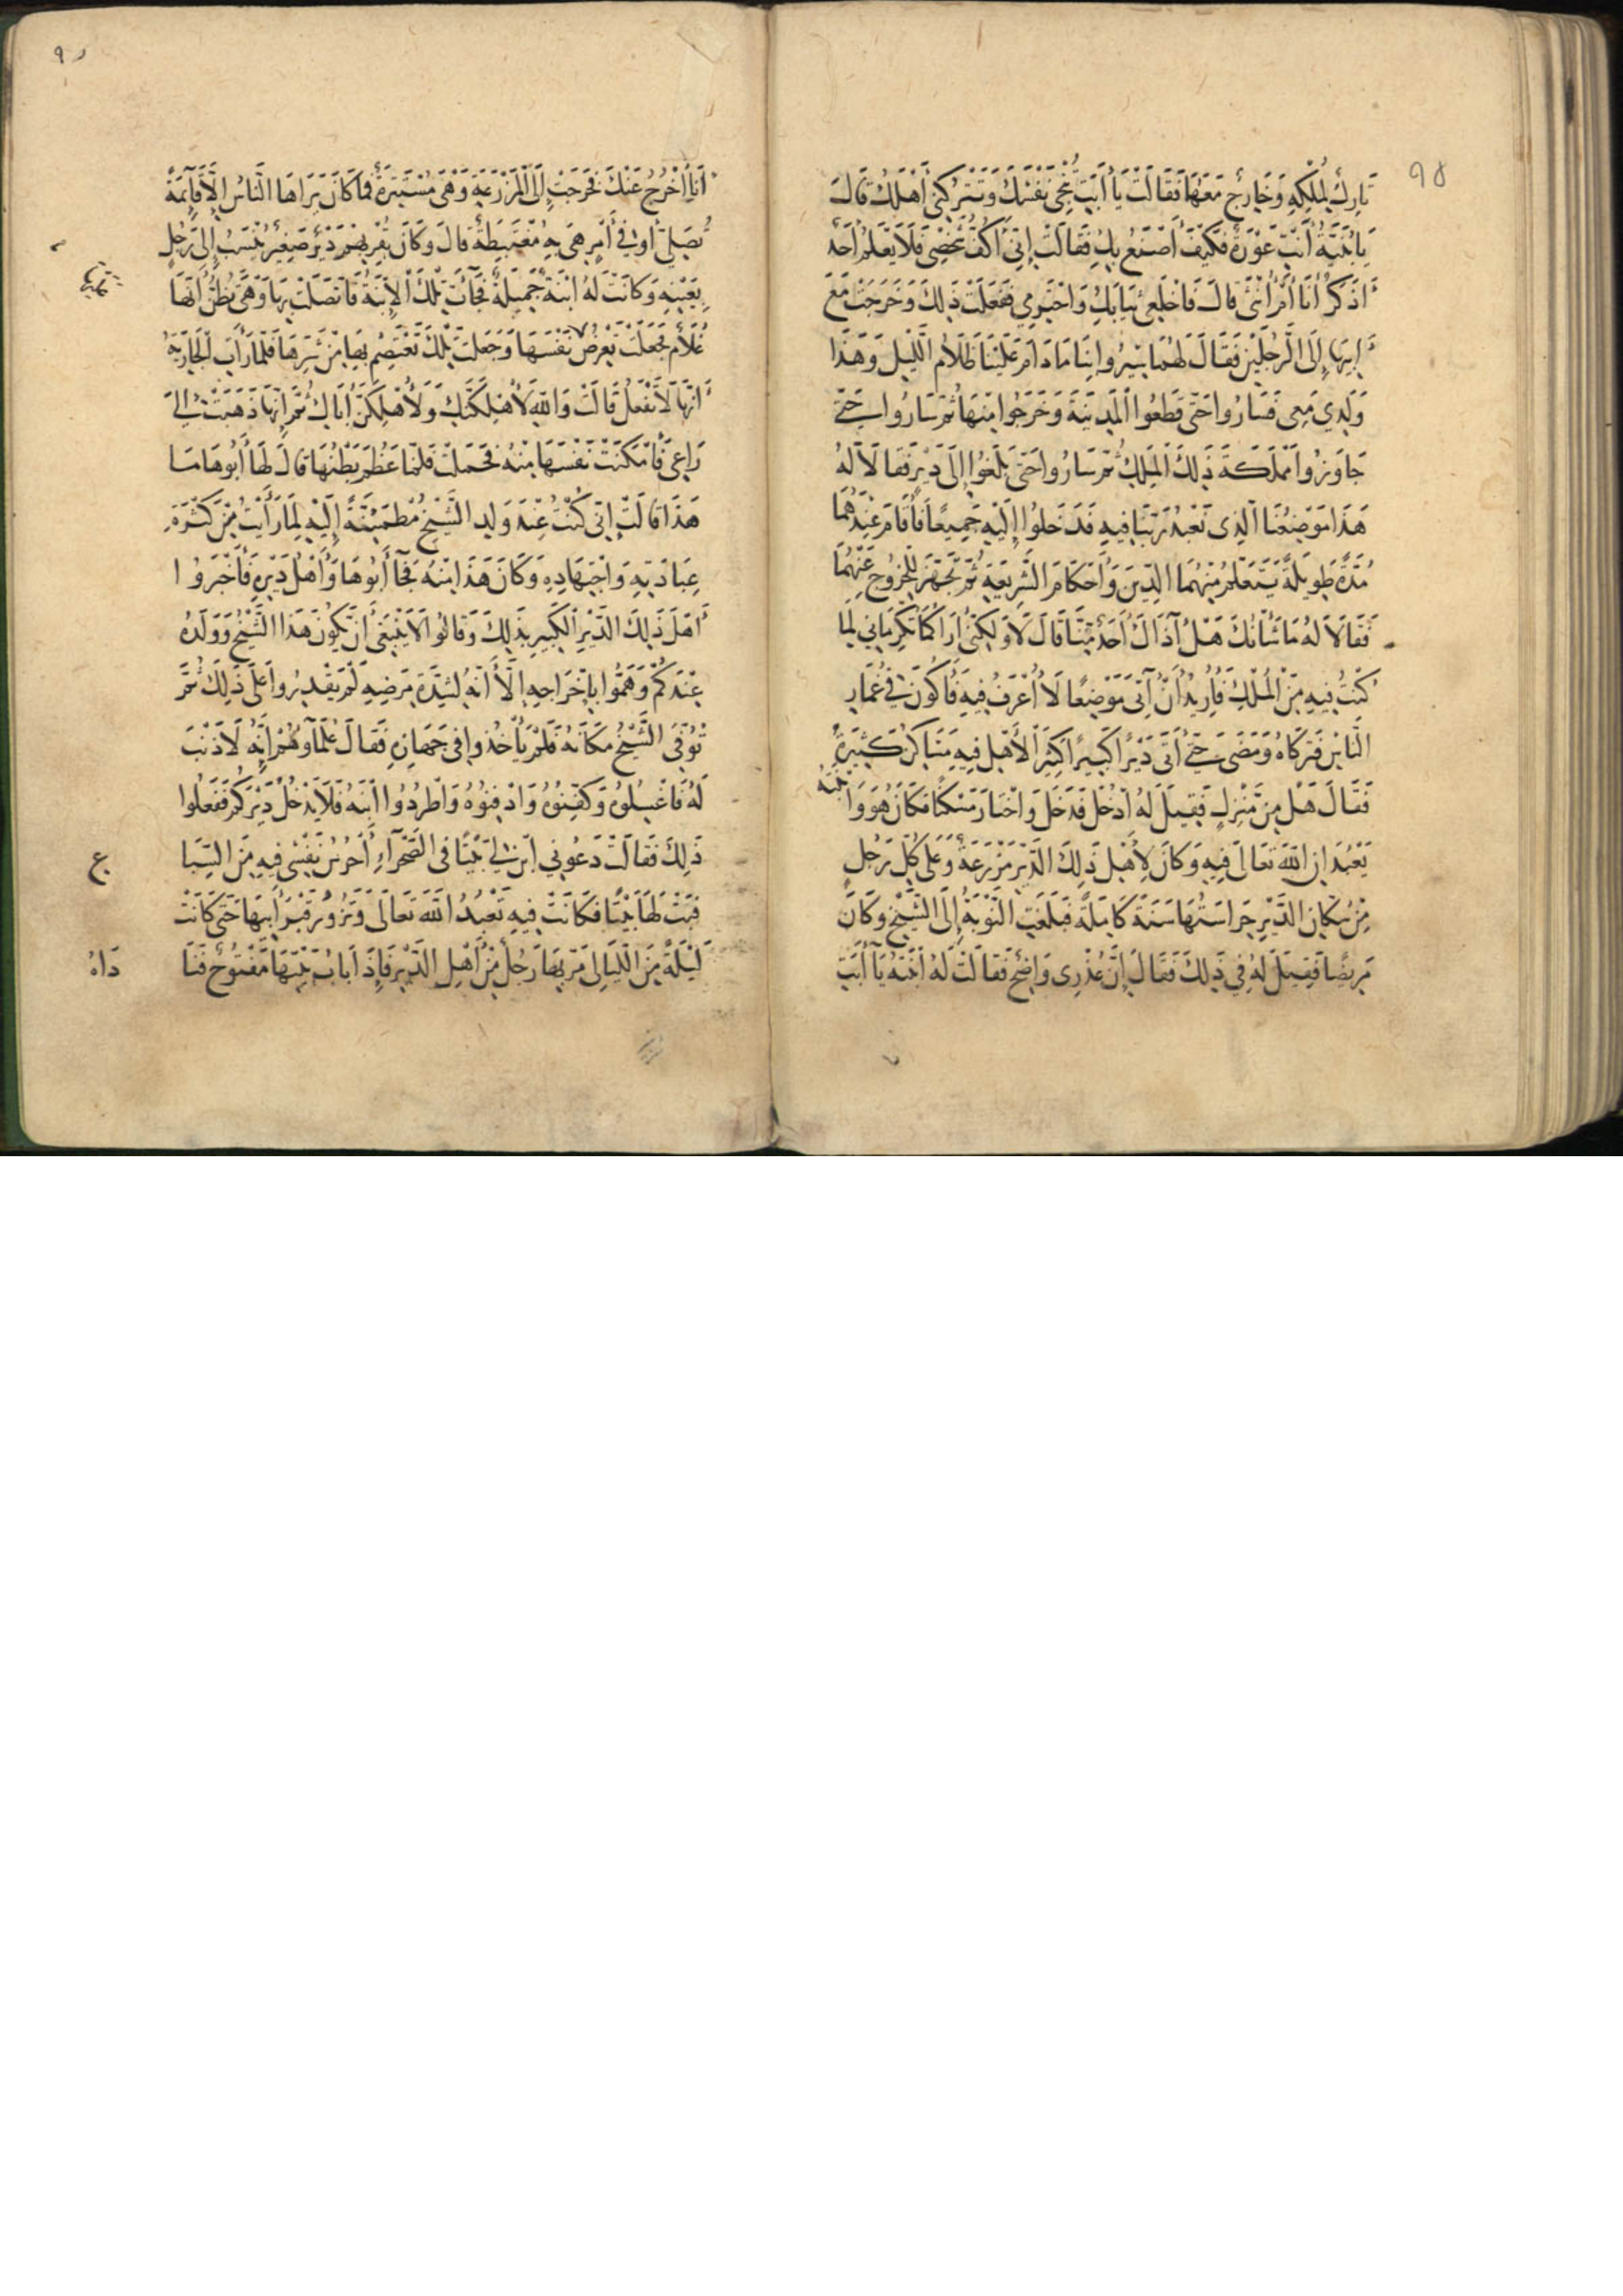 ٩٥
تَارِكٌ لِمُلْكِهِ وَخَارِجٌ مَعَهَا فَقَالَتْ يَا أَبَتِ تُنْجِى نَفْسَكَ وَتَتْرُكُنِى أَهْلَكُ قَالَ
يَا بُنَيَّةُ أَنْتِ عَوْرَةٌ فَكَيْفَ أَصْنَعُ بِكِ فَقَالَتْ إِنِّى أَكُفُّ شَخْصِى فَلَا يَعْلَمُ أَحَدٌ
أَذَكَرٌ أَنَا أَمْ أُنْثَى قَالَ فَاخْلَعِى ثِيَابَكِ وَاحْتَزِمِى فَفَعَلَتْ ذَلِكَ وَخَرَجَتْ مَعَ
أَبِيهَا إِلَى الرَّجُلَيْنِ فَقَالَ لَهُمَا سِيرُوا بِنَا مَا دَامَ عَلَيْنَا ظَلَامُ اللَّيْلِ وَهَذَا
وَلَدِي مَعِى فَسَارُوا حَتَّى قَطَعُوا الْمَدِينَةَ وَخَرَجُوا مِنْهَا ثُمَّ سَارُوا حَتَّى
جَاوَزُوا مَمْلَكَةَ ذَلِكَ الْمَلِكِ ثُمَّ سَارُوا حَتَّى بَلَغُوا إِلَى دَيْرٍ فَقَالَا لَهُ
هَذَا مَوْضِعُنَا الَّذِى نَعْبُدُ رَبَّنَا فِيهِ فَدَخَلُوا إِلَيْهِ جَمِيعًا فَأَقَامَ عِنْدَهُمَا
مُدَّةً طَوِيلَةً يَتَعَلَّمُ مِنْهُمَا الدِّينَ وَأَحْكَامَ الشَّرِيعَةِ ثُمَّ تَجَهَّزَ لِلْخُرُوجِ عَنْهُمَا
فَقَالَا لَهُ مَا شَأْنُكَ هَلْ آذَاكَ أَحَدٌ مِنَّا قَالَ لَا وَلَكِنِّى أَرَاكُمَا تُكْرِمَانِى لِمَا
كُنْتُ فِيهِ مِنَ الْمُلْكِ فَأُرِيدُ أَنْ آتِىَ مَوْضِعًا لَا أُعْرَفُ فِيهِ فَأَكُونَ فِى غُمَارِ
النَّاسِ فَتَرَكَاهُ وَمَضَى حَتَّى أَتَى دَيْرًا كَبِيرًا كَثِيرَ الْأَهْلِ فِيهِ مَسَاكِنُ كَثِيرَةٌ
فَقَالَ هَلْ مِنْ مَنْزِلٍ فَقِيلَ لَهُ ادْخُلْ فَدَخَلَ وَاخْتَارَ مَسْكَنًا فَكَانَ هُوَ وَابْنَتُهُ
يَعْبُدَانِ اللَّهَ تَعَالَى فِيهِ وَكَانَ لِأَهْلِ ذَلِكَ الدَّيْرِ مَزْرَعَةٌ وَعَلَى كُلِّ رَجُلٍ
مِنْ سُكَّانِ الدَّيْرِ حِرَاسَتُهَا سَنَةً كَامِلَةً فَبَلَغَتِ النَّوْبَةُ إِلَى الشَّيْخِ وَكَانَ
مَرِيضًا فَقِيلَ لَهُ فِى ذَلِكَ فَقَالَ إِنَّ عُذْرِى وَاضِحٌ فَقَالَتْ لَهُ ابْنَتُهُ يَا أَبَتِ
أَنَا أَخْرُجُ عَنْكَ فَخَرَجَتْ إِلَى الْمَزْرَعَةِ وَهْىَ مُسْتَتِرَةٌ فَمَا كَانَ يَرَاهَا النَّاسُ إِلَّا قَائِمَةً
تُصَلِّى أَوْ فِى أَمْرٍ هِىَ بِهِ مُغْتَبِطَةٌ قَالَ وَكَانَ بِقُرْبِهِمْ دَيْرٌ صَغِيرٌ يُنْسَبُ إِلَى رَجُلٍ
بِعَيْنِهِ وَكَانَتْ لَهُ ابْنَةٌ جَمِيلَةٌ فَجَاءَتْ تِلْكَ الْإِبْنَةُ فَاتَّصَلَتْ بِهَا وَهْىَ تَظُنُّ أَنَّهَا
غُلَامٌ فَجَعَلَتْ تَعْرِضُ نَفْسَهَا وَجَعَلَتْ تِلْكَ تَعْتَصِمُ بِهَا مِنْ شَرِّهَا فَلَمَّا رَأَتِ الْجَارِيَةُ
أَنَّهَا لَا تَفْعَلُ قَالَتْ وَاللَّهِ لَأُهْلِكَنَّكَ وَلَأُهْلِكَنَّ أَبَاكَ ثُمَّ إِنَّهَا ذَهَبَتْ إِلَى
رَاعِى فَأَمْكَنَتْ نَفْسَهَا مِنْهُ فَحَمَلَتْ فَلَمَّا عَظُمَ بَطْنُهَا قَالَ لَهَا أَبُوهَا مَا
هَذَا قَالَتْ إِنِّى كُنْتُ عِنْدَ وَلَدِ الشَّيْخِ مُطْمَئِنَّةً إِلَيْهِ لِمَا رَأَيْتُ مِنْ كَثْرَةِ
عِبَادَتِهِ وَاجْتِهَادِهِ وَكَانَ هَذَا مِنْهُ فَجَاءَ أَبُوهَا وَأَهْلُ دَيْرِهِ فَأَخْبَرُوا
أَهْلَ ذَلِكَ الدَّيْرِ الْكَبِيرِ بِذَلِكَ وَقَالُوا لَا يَنْبَغِى أَنْ يَكُونَ هَذَا الشَّيْخُ وَوَلَدُهُ
عِنْدَكُمْ وَهَمُّوا بِإِخْرَاجِهِ إِلَّا أَنَّهُ لِشِدَّةِ مَرَضِهِ لَمْ يَقْدِرُوا عَلَى ذَلِكَ ثُمَّ
تُوُفِّىَ الشَّيْخُ مَكَانَهُ فَلَمْ يَأْخُذُوا فِى جَهَازِهِ فَقَالَ عُلَمَاؤُهُمْ إِنَّهُ لَا ذَنْبَ
لَهُ فَاغْسِلُوهُ وَكَفِّنُوهُ وَادْفِنُوهُ وَاطْرُدُوا ابْنَهُ فَلَا يَدْخُلُ دَيْرَكُمْ فَفَعَلُوا
ذَلِكَ فَقَالَتْ دَعُونِى ابْنِ لِى بَيْتًا فِى الصَّحْرَاءِ أُحْرِزُ نَفْسِى فِيهِ مِنَ السِّبَا
ع
فَبَنَتْ لَهَا بَيْتًا فَكَانَتْ فِيهِ تَعْبُدُ اللَّهَ تَعَالَى وَتَزُورُ قَبْرَ أَبِيهَا حَتَّى كَانَتْ
لَيْلَةٌ مِنَ اللَّيَالِى مَرَّ بِهَا رَجُلٌ مِنْ أَهْلِ الدَّيْرِ فَإِذَا بَابُ بَيْتِهَا مَفْتُوحٌ فَنَا
دَاهُ